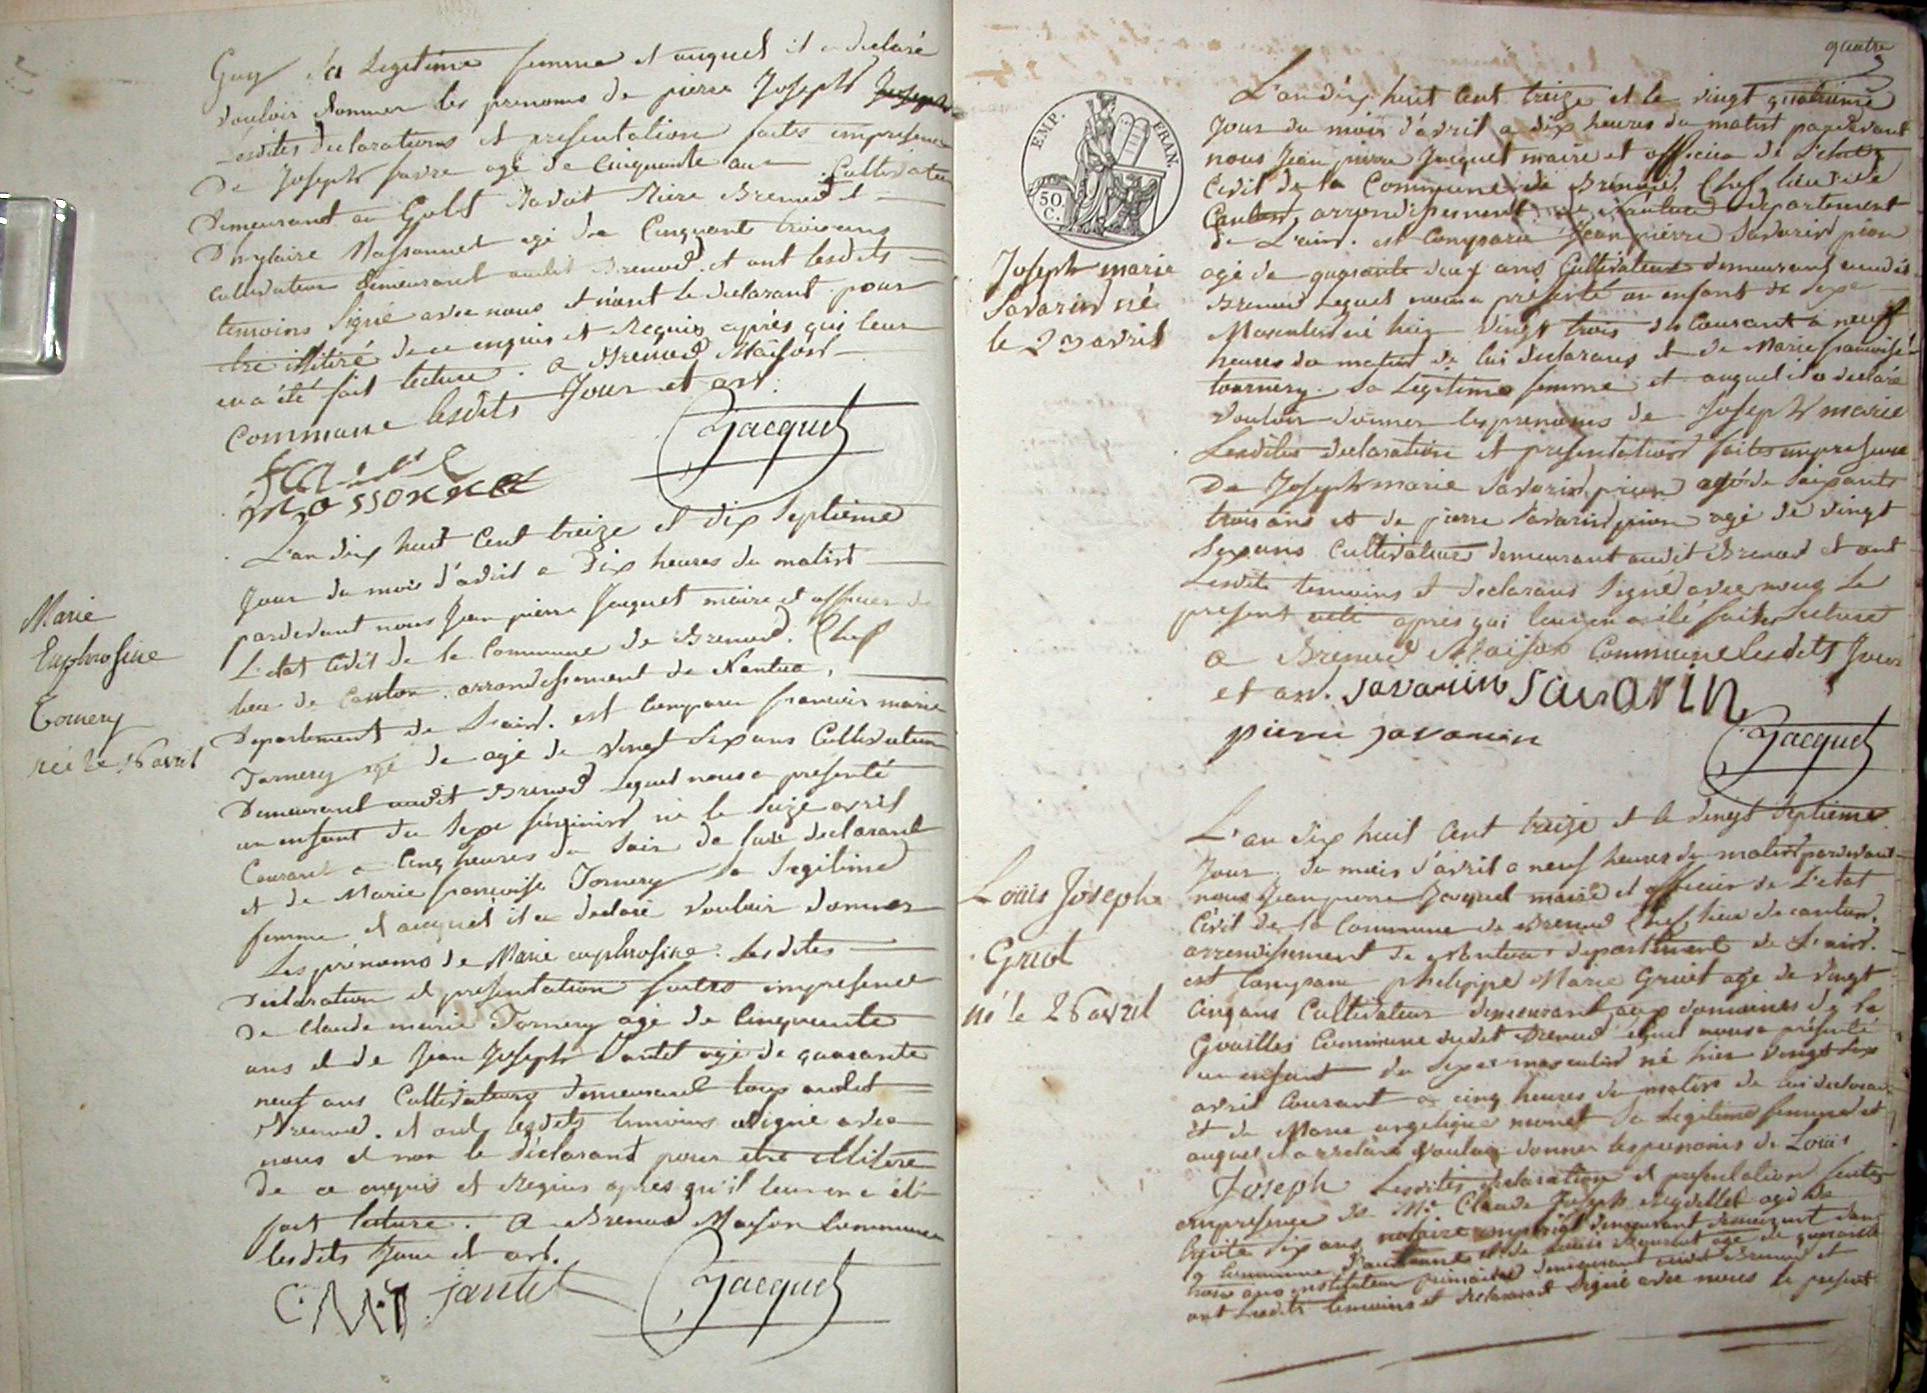 Guy sa Legitime femme et auquel il a declaré
vouloir donner les prenoms de pierre Joseph Joseph
Lesdites declarations et presentation faites en presence
De Joseph favre agé de Cinquante ans Cultivateur
Demeurant au Golet Brenod et
D'hylaire Massonnet agé de Cinquante trois ans
Cultivateur Demeurant audit Brenod. et ont lesdits
temoins Signé avec nous et non le declarant pour
etre illitéré de ce enquis et Requis après qui leur
en a été fait lecture. a Brenod Maison
Commune lesdits Jour et an.
Jacquet
favre
massonnet
L'an dix huit Cent treize et dix Septieme
Jour du mois d'avril a Dix heures du matin
pardevant nous Jean pierre Jacquet maire et officier de
L'etat Civil de la Commune de Brenod. Chef
lieu de Canton. arrondissement de Nantua,
Departement de L'ain. est Comparu francois marie
Tornery agé de agé de vingt Six ans Cultivateur
Demeurant audit Brenod Lequel nous a presenté
un enfant du Sexe féminin né le Seize avril
Courant a Cinq heures du Soir de lui declarant
et de Marie francoise Tornery Sa Legitime
femme et auquel il a declaré vouloir donner
Les prénoms de Marie euphrosine. Lesdites
Déclaration et presentation faites en presence
De Claude marie Tornery agé de Cinquante
ans et de Jean Joseph Jantet agé de quarante
neuf ans Cultivateurs Demeurant tous audit
Brenod. et ont lesdits temoins Signé avec
nous et non le déclarant pour etre illitéré
De ce enquis et Requis après qu'il leur en a été
fait lecture. a Brenod Maison Commune
lesdits Jour et an.
C. M. T jantet Jacquet
Marie
Euphrosine
Tornery
née le 16 avril
quatre
EMP. FRAN.
50
C.
L'an dix huit Cent treize et le vingt quatrieme
Jour du mois d'avril a dix heures du matin pardevant
nous Jean pierre Jacquet maire et officier de L'etat
Civil de la Commune de Brenod, Chef lieu de
Canton, arrondissement de Nantua departement
de L'ain. est Comparu Jean pierre Savarin pion
agé de quarante deux ans Cultivateur demeurant audit
Brenod Lequel nous a présenté un enfant de Sexe
Masculin né hier vingt trois du Courant a neuf
heures du matin de lui declarant et de Marie francoise
tournery Sa Legitime femme et auquel il a declaré
vouloir donner les prenoms de Joseph marie
Lesdites declaration et presentation faites en presence
De Joseph marie Savarin pion agé de Soixante
trois ans et de pierre Savarin pion agé de vingt
Six ans Cultivateurs demeurant audit Brenod et ont
Lesdits temoins et declarant Signé avec nous le
present acte après qui leur en a été fait Lecture
a Brenod Maison Commune lesdits Jour
et an. Savarin Savarin
pierre Savarin Jacquet
Joseph marie
Savarin né
le 23 avril
L'an dix huit Cent treize et le vingt Septieme
Jour du mois d'avril a neuf heures du matin pardevant
nous Jean pierre Jacquet maire et officier de L'etat
Civil de la Commune de Brenod Chef lieu de canton.
arrondissement de Nantua departement de L'ain.
est Comparu philippe Marie Gruet agé de vingt
Cinq ans Cultivateur demeurant aux domaines de la
Gouilles Commune dudit Brenod lequel nous a présenté
un enfant du Sexe masculin né hier vingt Six
avril Courant a cinq heures du matin de lui declarant
et de Marie angelique monet Sa Legitime femme et
auquel il a declaré vouloir donner les prenoms de Louis
Joseph Lesdites declaration et presentation faites
en presence de Mr. Claude Joseph agé de
trente Six ans notaire imperial demeurant demeurant dans
la Commune et de Louis agé de quarante
trois ans instituteur primaire demeurant audit Brenod et
ont Lesdits temoins et declarant Signé avec nous le present
Louis Joseph
Gruet
né le 26 avril